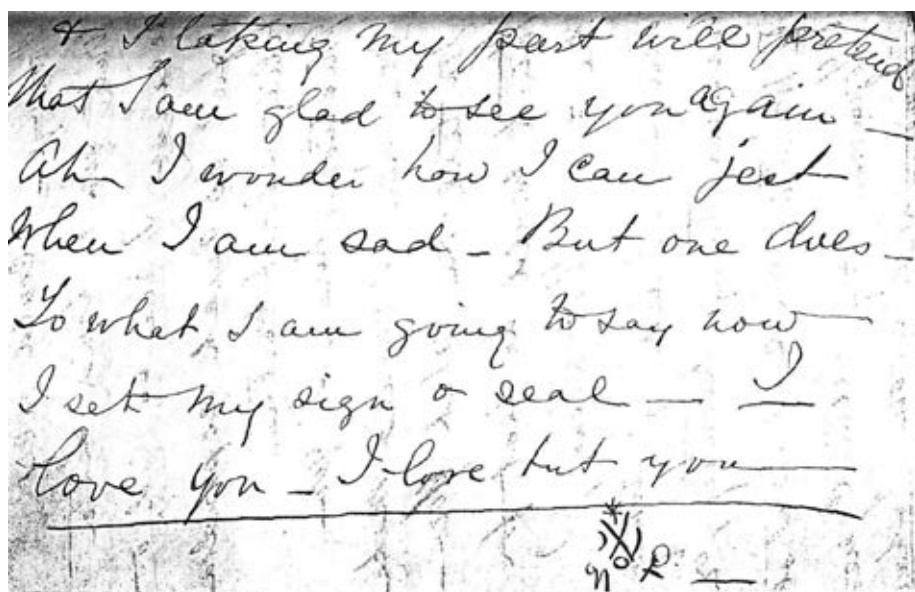 & I taking my part will pretend
that I am glad to see you again —
Ah I wonder how I can jest
When I am sad — But one does —
To what I am going to say now
I set my sign & seal — I
love you — I love but you —